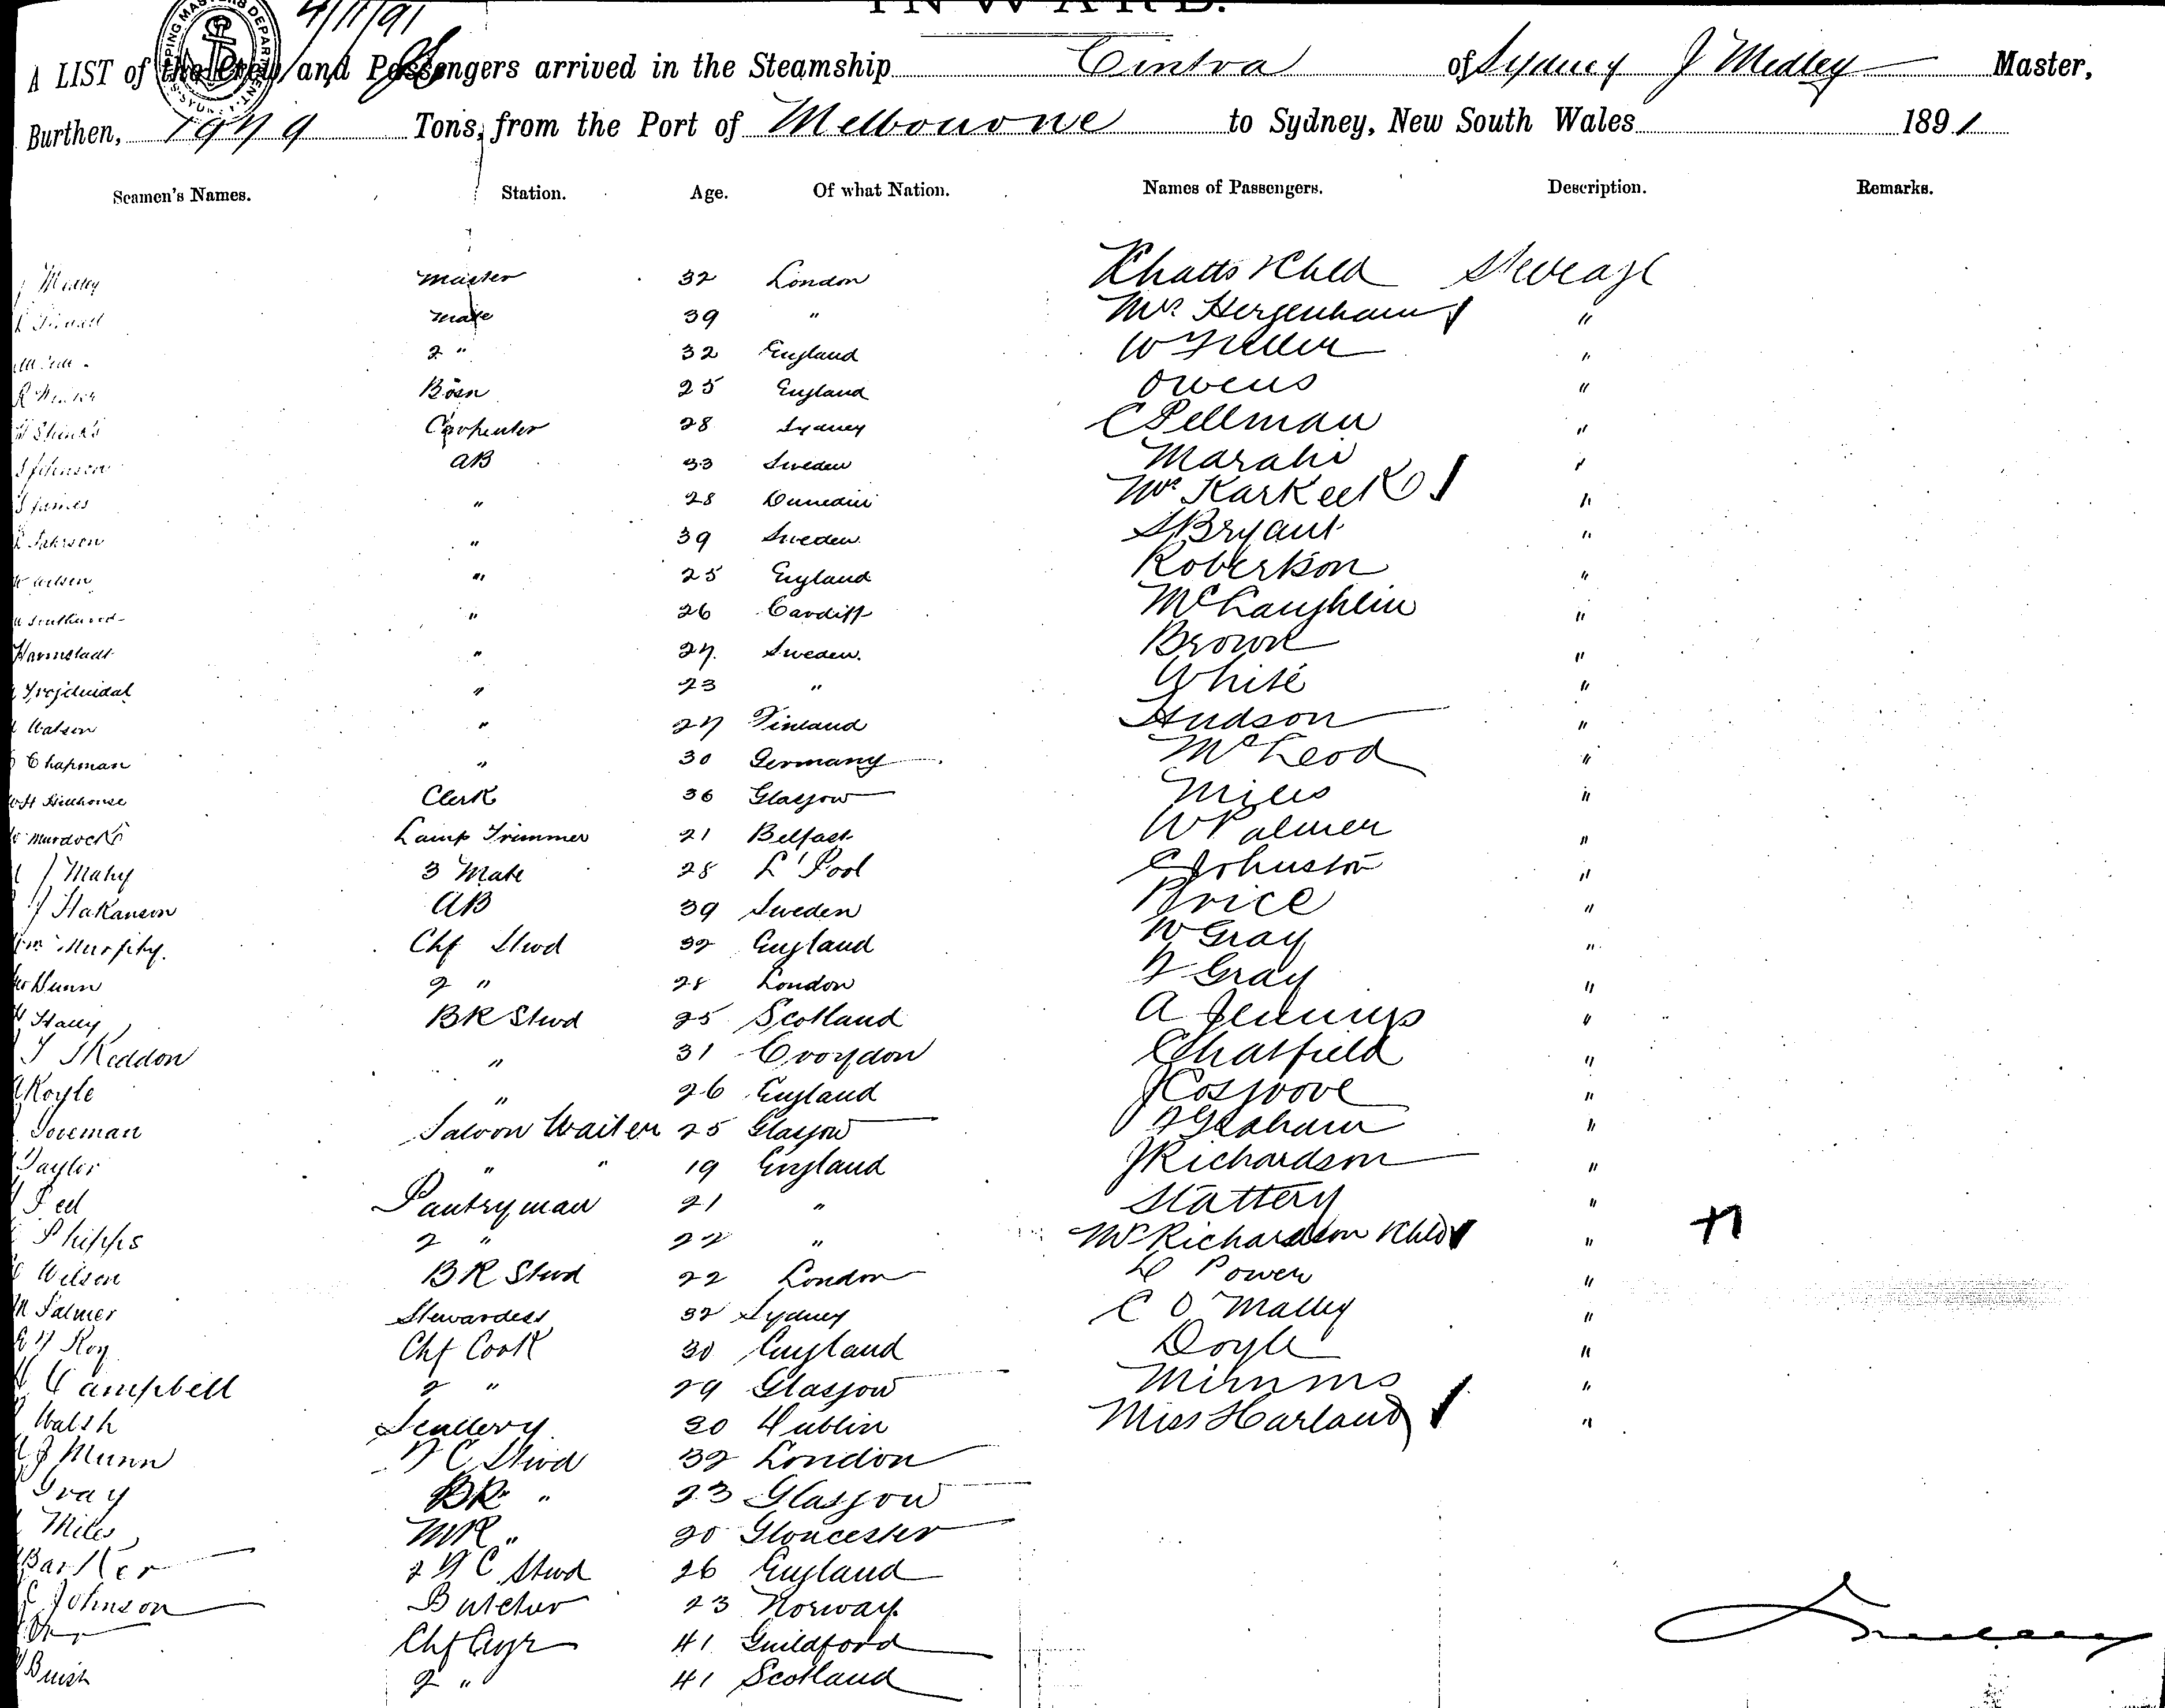 INWARD.
4/11/91
A LIST of the Crew and Passengers arrived in the Steamship Cintra of Sydney J Medley Master,
Burthen, 1979 Tons, from the Port of Melbourne to Sydney, New South Wales 1891
Seamen's Names. Station. Age. Of what Nation. Names of Passengers. Description. Remarks.
J Medley Master 32 London Khatts & Chld Steerage
Mate 39 " Mrs Hergenham "
2 " 32 England W Fuller "
Bosn 25 England Owens "
Carpenter 28 Sydney C Pellman "
Johnson AB 33 Sweden Marahi "
James " 28 Dunedin Mrs Karkeek "
" 39 Sweden S Bryant "
Wilson " 25 England Robertson "
Southwood " 26 Cardiff McLaughlin "
Harmstadt " 27 Sweden. Brown "
" 23 " White "
Watson " 27 Finland Hudson "
Chapman " 30 Germany McLeod "
WH Hillhouse Clerk 36 Glasgow Miles "
Murdock Lamp Trimmer 21 Belfast W Palmer "
J Mahy 3 Mate 28 L'Pool C Johnston "
J Hakanson AB 39 Sweden Price "
Wm Murphy. Chf Stwd 32 England W Gray "
Dunn 2 " 28 London F Gray "
Hally BR Stwd 25 Scotland A Jennings "
J Skeddon " 31 Croydon Chatfield "
A Koyle " 26 England J Cosgrove "
Foreman Saloon Waiter 25 Glasgow F Graham "
Taylor " " 19 England J Richardson "
Peel Pantryman 21 " Slattery "
Phipps 2 " 22 " Mrs Richardson & Chld "
Wilson BR Stwd 22 London Power "
M Palmer Stewardess 32 Sydney C O'Malley "
Roy Chf Cook 30 England Doyle "
Campbell 2 " 29 Glasgow Mimms "
Walsh Scullery 20 Dublin Miss Harland "
J Munn F C Stwd 32 London
Gray BR " 23 Glasgow
Miles MR " 20 Gloucester
Barker 2 F C Stwd 26 England
C Johnson Butcher 23 Norway
Chf Engr 41 Guildford
2 " 41 Scotland
JMedley